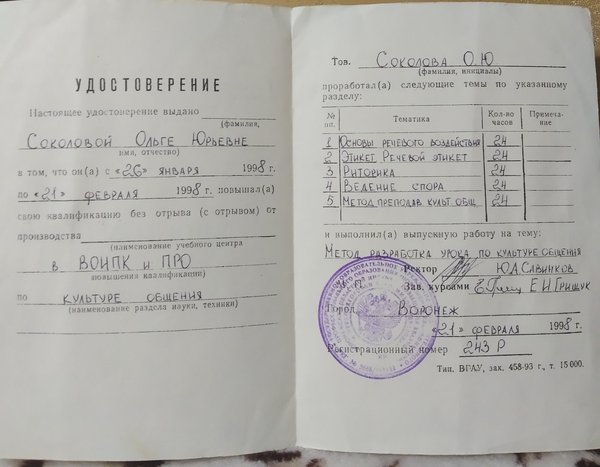 УДОСТОВЕРЕНИЕ
Настоящее удостоверение выдано
(фамилия,
СОКОЛОВОЙ ОЛЬГЕ ЮРЬЕВНЕ
имя, отчество)
в том, что он(а) с «26» ЯНВАРЯ 1998 г.
по «21» ФЕВРАЛЯ 1998 г. повышал(а)
свою квалификацию без отрыва (с отрывом) от
производства
(наименование учебного центра
в ВОИПК и ПРО
повышения квалификации)
по КУЛЬТУРЕ ОБЩЕНИЯ
(наименование раздела науки, техники)
Тов. СОКОЛОВА О.Ю
(фамилия, инициалы)
проработал(а) следующие темы по указанному
разделу:
№ пп. Тематика Кол-во часов Примечание
1 ОСНОВЫ РЕЧЕВОГО ВОЗДЕЙСТВИЯ 24
2 ЭТИКЕТ РЕЧЕВОЙ ЭТИКЕТ 24
3 РИТОРИКА 24
4 ВЕДЕНИЕ СПОРА 24
5 МЕТОД ПРЕПОДАВ. КУЛЬТ. ОБЩ. 24
и выполнил(а) выпускную работу на тему:
МЕТОД РАЗРАБОТКА УРОКА ПО КУЛЬТУРЕ ОБЩЕНИЯ
Ректор Ю.А САВИНКОВ
М. П.
Зав. курсами Е И ГРИЩУК
Город ВОРОНЕЖ
«21» ФЕВРАЛЯ 1998 г.
Регистрационный номер 243 Р
Тип. ВГАУ, зак. 458-93 г., т. 15 000.